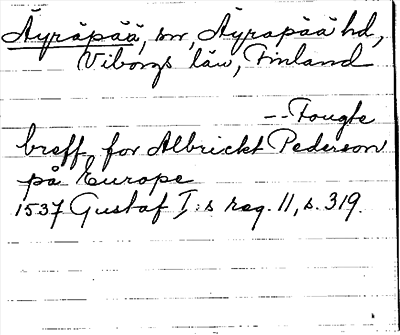 Äyräpää, sn, Äyräpää hd,
Viborgs län, Finland
--Fougte
breff for Albrickt Pederson
på Europe
1537 Gustaf I:s reg. 11, s. 319.